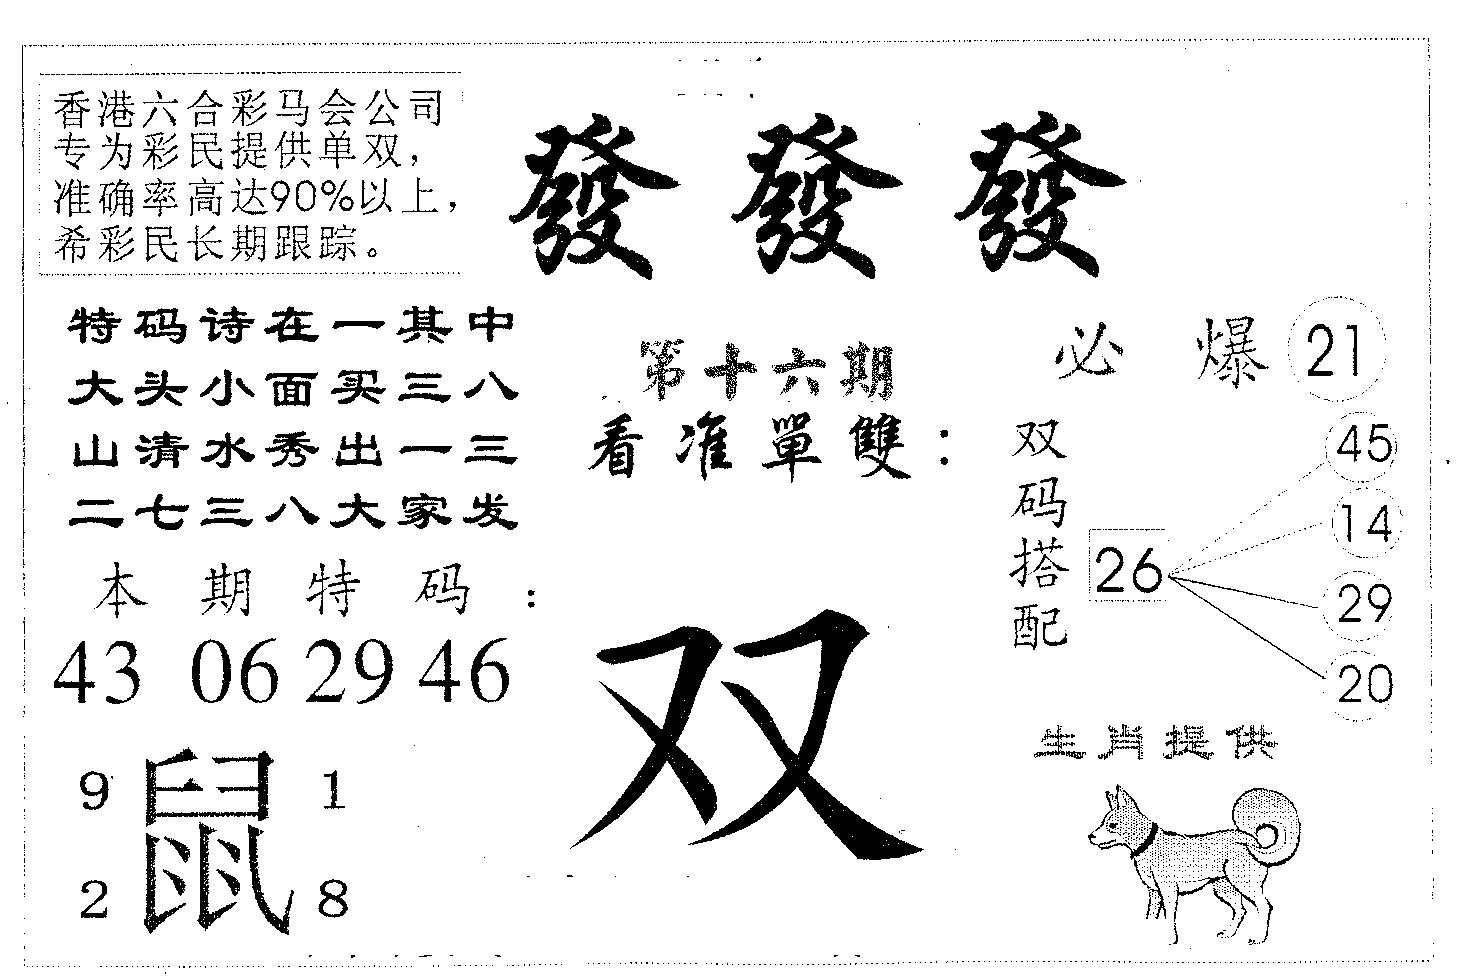 香港六合彩马会公司
专为彩民提供单双，
准确率高达90%以上，
希彩民长期跟踪。
發發發
特码诗在一其中
大头小面买三八
山清水秀出一三
二七三八大家发
第十六期
看准單雙：
双
必爆 21
双码搭配
26
45
14
29
20
本期特码：
43 06 29 46
9 鼠 1
2 8
生肖提供